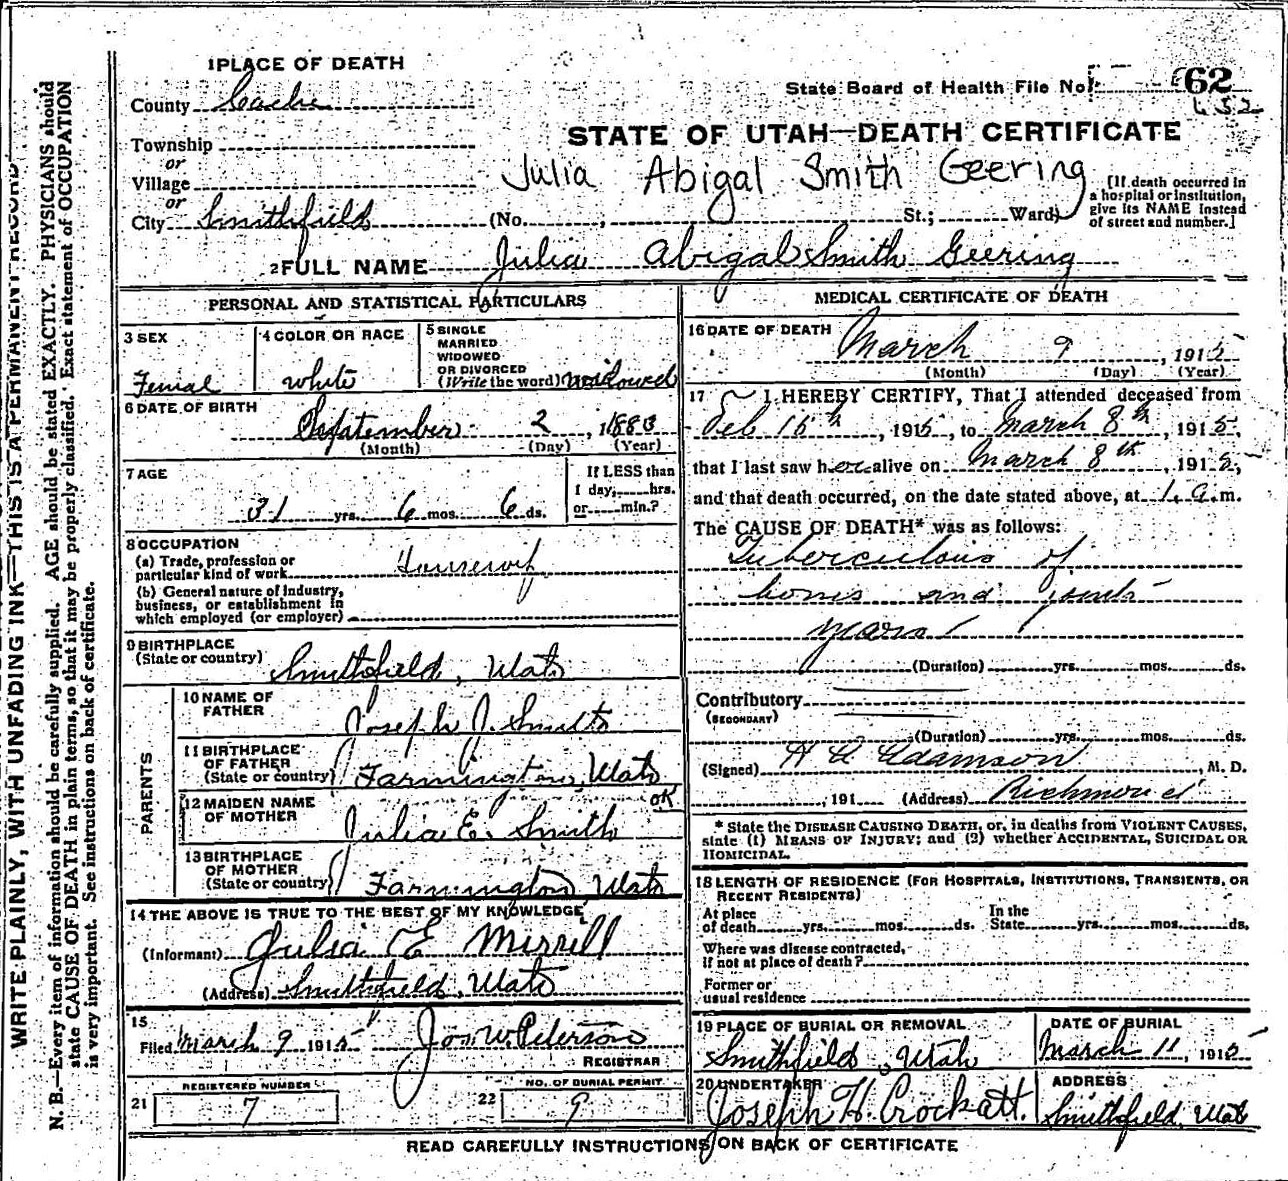 WRITE PLAINLY, WITH UNFADING INK—THIS IS A PERMANENT RECORD
N. B.—Every item of information should be carefully supplied. AGE should be stated EXACTLY. PHYSICIANS should
state CAUSE OF DEATH in plain terms, so that it may be properly classified. Exact statement of OCCUPATION
is very important. See instructions on back of certificate.
1 PLACE OF DEATH
County Cache
State Board of Health File No. 62
652
Township
STATE OF UTAH—DEATH CERTIFICATE
or
Village
Julia Abigal Smith Geering
or
City Smithfield (No. ; St.; Ward)
[If death occurred in
a hospital or institution,
give its NAME instead
of street and number.]
2 FULL NAME Julia Abigal Smith Geering
PERSONAL AND STATISTICAL PARTICULARS
3 SEX
Femal
4 COLOR OR RACE
white
5 SINGLE
MARRIED
WIDOWED
OR DIVORCED
(Write the word) widowed
6 DATE OF BIRTH
September 2, 1883
(Month) (Day) (Year)
7 AGE
31 yrs. 6 mos. 6 ds.
If LESS than
1 day, hrs.
or min.?
8 OCCUPATION
(a) Trade, profession or
particular kind of work Housewif
(b) General nature of industry,
business, or establishment in
which employed (or employer)
9 BIRTHPLACE
(State or country) Smithfield, Utah
PARENTS
10 NAME OF
FATHER Joseph J. Smith
11 BIRTHPLACE
OF FATHER
(State or country) Farmington, Utah
12 MAIDEN NAME
OF MOTHER Julia E. Smith OK
13 BIRTHPLACE
OF MOTHER
(State or country) Farmington, Utah
14 THE ABOVE IS TRUE TO THE BEST OF MY KNOWLEDGE
(Informant) Julia E Merrill
(Address) Smithfield, Utah
15
Filed March 9 1915 Jos. W. Peterson
REGISTRAR
REGISTERED NUMBER
21 7
NO. OF BURIAL PERMIT
22 9
MEDICAL CERTIFICATE OF DEATH
16 DATE OF DEATH
March 9, 1915
(Month) (Day) (Year)
17 I HEREBY CERTIFY, That I attended deceased from
Feb 15th, 1915, to March 8th, 1915,
that I last saw her alive on March 8th, 1915,
and that death occurred, on the date stated above, at 1 a m.
The CAUSE OF DEATH* was as follows:
Tuberculosis of
bones and joints
years
(Duration) yrs. mos. ds.
Contributory
(SECONDARY)
(Duration) yrs. mos. ds.
(Signed) Adamson, M. D.
, 191 (Address) Richmond
* State the DISEASE CAUSING DEATH, or, in deaths from VIOLENT CAUSES,
state (1) MEANS OF INJURY; and (2) whether ACCIDENTAL, SUICIDAL OR
HOMICIDAL.
18 LENGTH OF RESIDENCE (FOR HOSPITALS, INSTITUTIONS, TRANSIENTS, OR
RECENT RESIDENTS)
At place
of death yrs. mos. ds.
In the
State yrs. mos. ds.
Where was disease contracted,
if not at place of death?
Former or
usual residence
19 PLACE OF BURIAL OR REMOVAL
Smithfield, Utah
DATE OF BURIAL
March 11, 1915
20 UNDERTAKER
Joseph H. Crockatt.
ADDRESS
Smithfield, Utah
READ CAREFULLY INSTRUCTIONS ON BACK OF CERTIFICATE